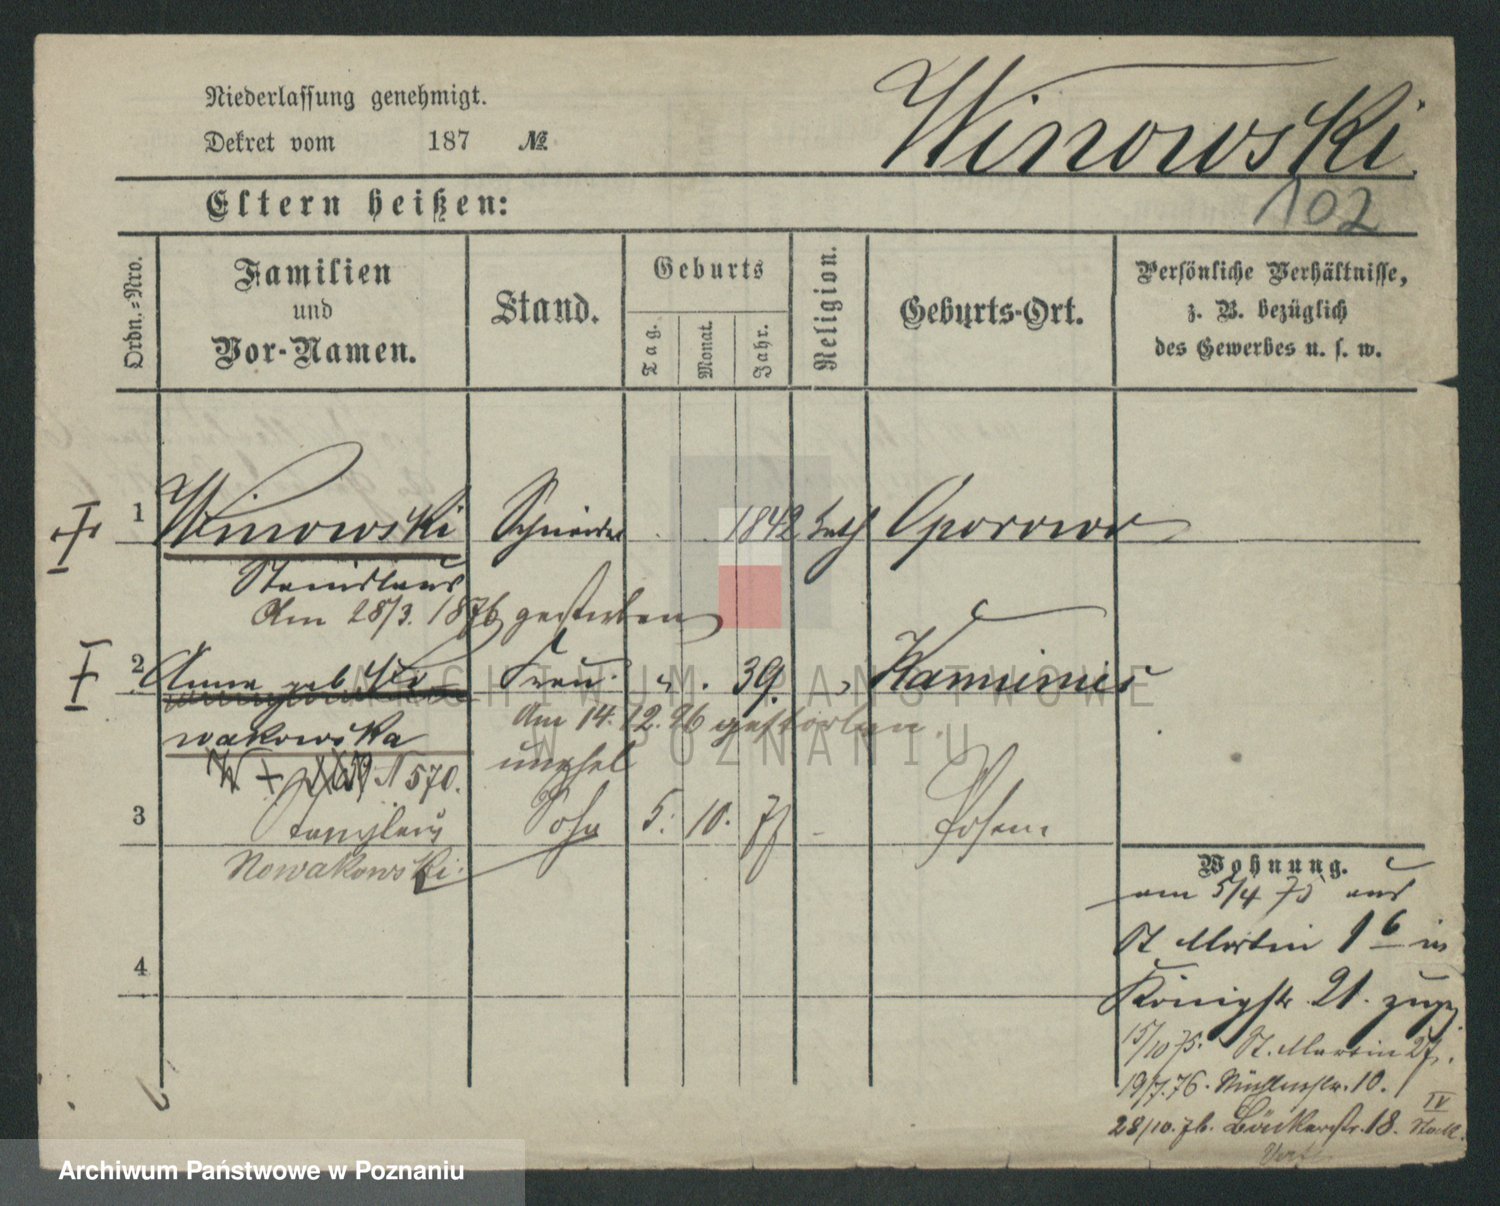 Niederlassung genehmigt.
Dekret vom 187 №
Winowski
102
Eltern heißen:
Ordn.-Nro.
Familien
und
Vor-Namen.
Stand.
Geburts
Tag.
Monat.
Jahr.
Religion.
Geburts-Ort.
Persönliche Verhältnisse,
z. B. bezüglich
des Gewerbes u. s. w.
1 Winowski Schneider 1842 kath Oporowo
Stanislaus
Am 28/3. 1876 gestorben
2 Anna geb No Frau 39.
wakowska
Am 14. 12. 96 gestorben.
unehel
N 570.
3 Sohn 5. 10. 77 Posen
Nowakowski
4
Wohnung.
am 5/4 75 aus
St Martin 16 in
Königstr. 21. zugez.
15/10 75. St. Martin 27.
19/7.76. 10.
IV
28/10.76. Bäckerstr. 18.
ARCHIWUM PAŃSTWOWE
W POZNANIU
Archiwum Państwowe w Poznaniu